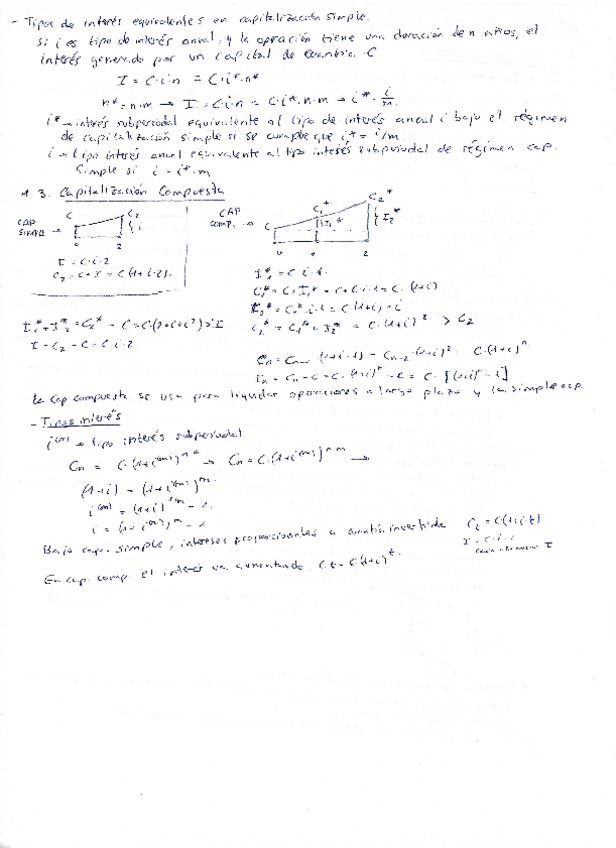 - Tipos de interés equivalentes en capitalización simple.
Si i es tipo de interés anual, y la operación tiene una duración de n años, el
interés generado por un capital de cuantía C
I = C·i·n = C·i*·n*
n* = n·m → I = C·i·n = C·i*·n·m → i* = i/m
i* → interés subperiodal equivalente al tipo de interés anual i bajo el régimen
de capitalización simple si se cumple que i* = i/m.
i → tipo interés anual equivalente al tipo interés subperiodal de régimen cap.
simple si i = i*·m
3. Capitalización Compuesta
CAP SIMPLE
C
C2
i
0
2
I = C·i·2
C2 = C+I = C(1+i·2).
CAP COMP.
C
C1*
I1*
C2*
I2*
0
2
I1* = C·i·1.
C1* = C+I1* = C+C·i·1 = C·(1+i)
I2* = C1*·i·1 = C(1+i)·i
C2* = C1*+I2* = C·(1+i)² > C2
I1*+I2* = C2* - C = C·(2+i+i²) > I
I = C2 - C = C·i·2
Cn = Cn-1·(1+i·1) = Cn-2·(1+i)² = C·(1+i)^n
In = Cn - C = C·(1+i)^n - C = C·[(1+i)^n - 1]
La cap compuesta se usa para liquidar operaciones a largo plazo y la simple a cp.
- Tipos interés
i^(m) = tipo interés subperiodal
Cn = C·(1+i^(m))^n* → Cn = C·(1+i^(m))^n·m →
(1+i) = (1+i^(m))^m.
i^(m) = (1+i)^1/m - 1.
i = (1+i^(m))^m - 1
Bajo cap. simple, intereses proporcionales a cuantía invertida
Ct = C(1+i·t)
En cap. comp. el interés va aumentando. Ct = C(1+i)^t.